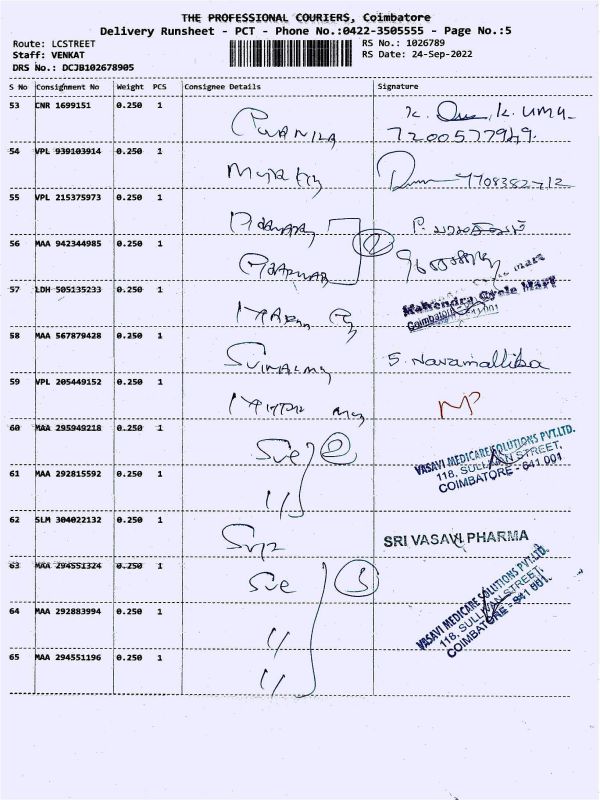 THE PROFESSIONAL COURIERS, Coimbatore
Delivery Runsheet - PCT - Phone No.:0422-3505555 - Page No.:5
Route: LCSTREET
Staff: VENKAT
DRS No.: DCJB102678905
RS No.: 1026789
RS Date: 24-Sep-2022
S No Consignment No Weight PCS Consignee Details Signature
53 CNR 1699151 0.250 1 K. UMA
7200577949.
54 VPL 939103914 0.250 1 7708382712
55 VPL 215375973 0.250 1
56 MAA 942344985 0.250 1 2
57 LDH 505135233 0.250 1 Mahendra Cycle Mart
Coimbatore
58 MAA 567879428 0.250 1 S. Navamallika
59 VPL 205449152 0.250 1 MP
60 MAA 295949218 0.250 1 Sve 2 VASAVI MEDICARE SOLUTIONS PVT.LTD.
118, SULLIVAN STREET,
COIMBATORE - 641 001
61 MAA 292815592 0.250 1 11
62 SLM 304022132 0.250 1 SRI VASAVI PHARMA
63 MAA 294551324 0.250 1 Sve 3 VASAVI MEDICARE SOLUTIONS PVT.LTD.
118, SULLIVAN STREET,
COIMBATORE - 641 001.
64 MAA 292883994 0.250 1 11
65 MAA 294551196 0.250 1 11